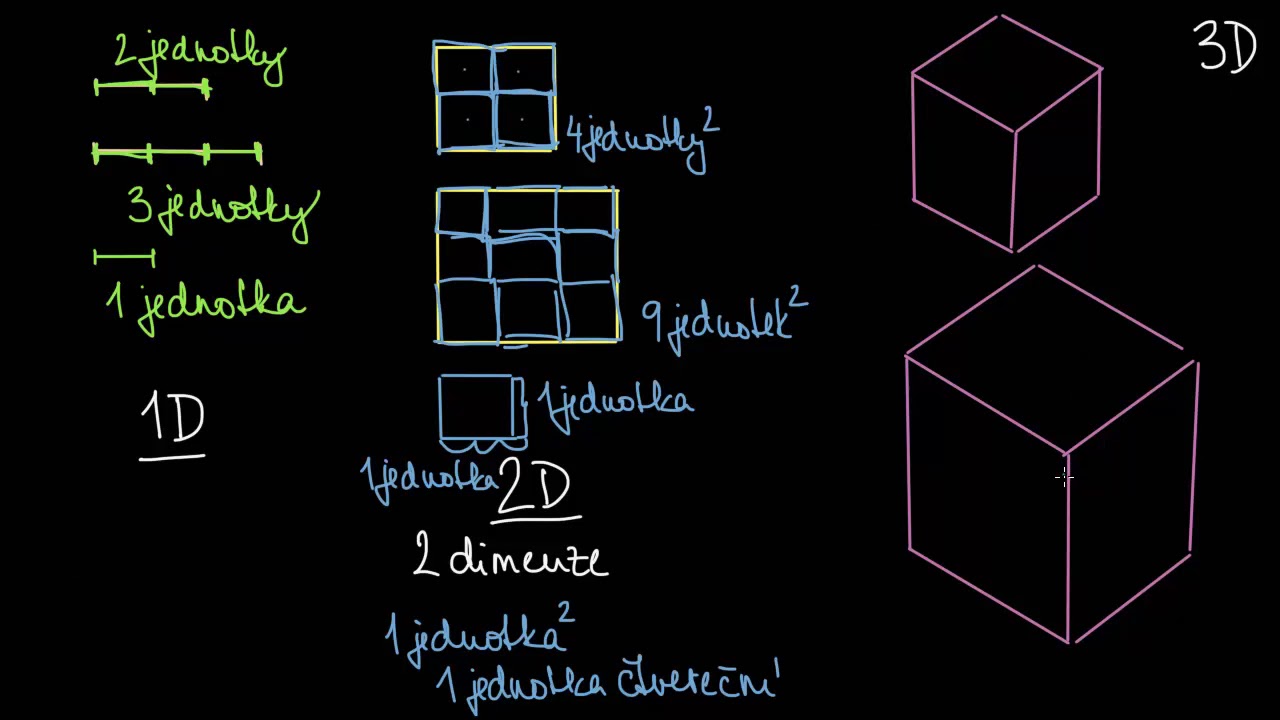 2 jednotky
3 jednotky
1 jednotka
1D
4 jednotky²
9 jednotek²
1 jednotka
1 jednotka
2D
2 dimenze
1 jednotka²
1 jednotka čtvereční
3D